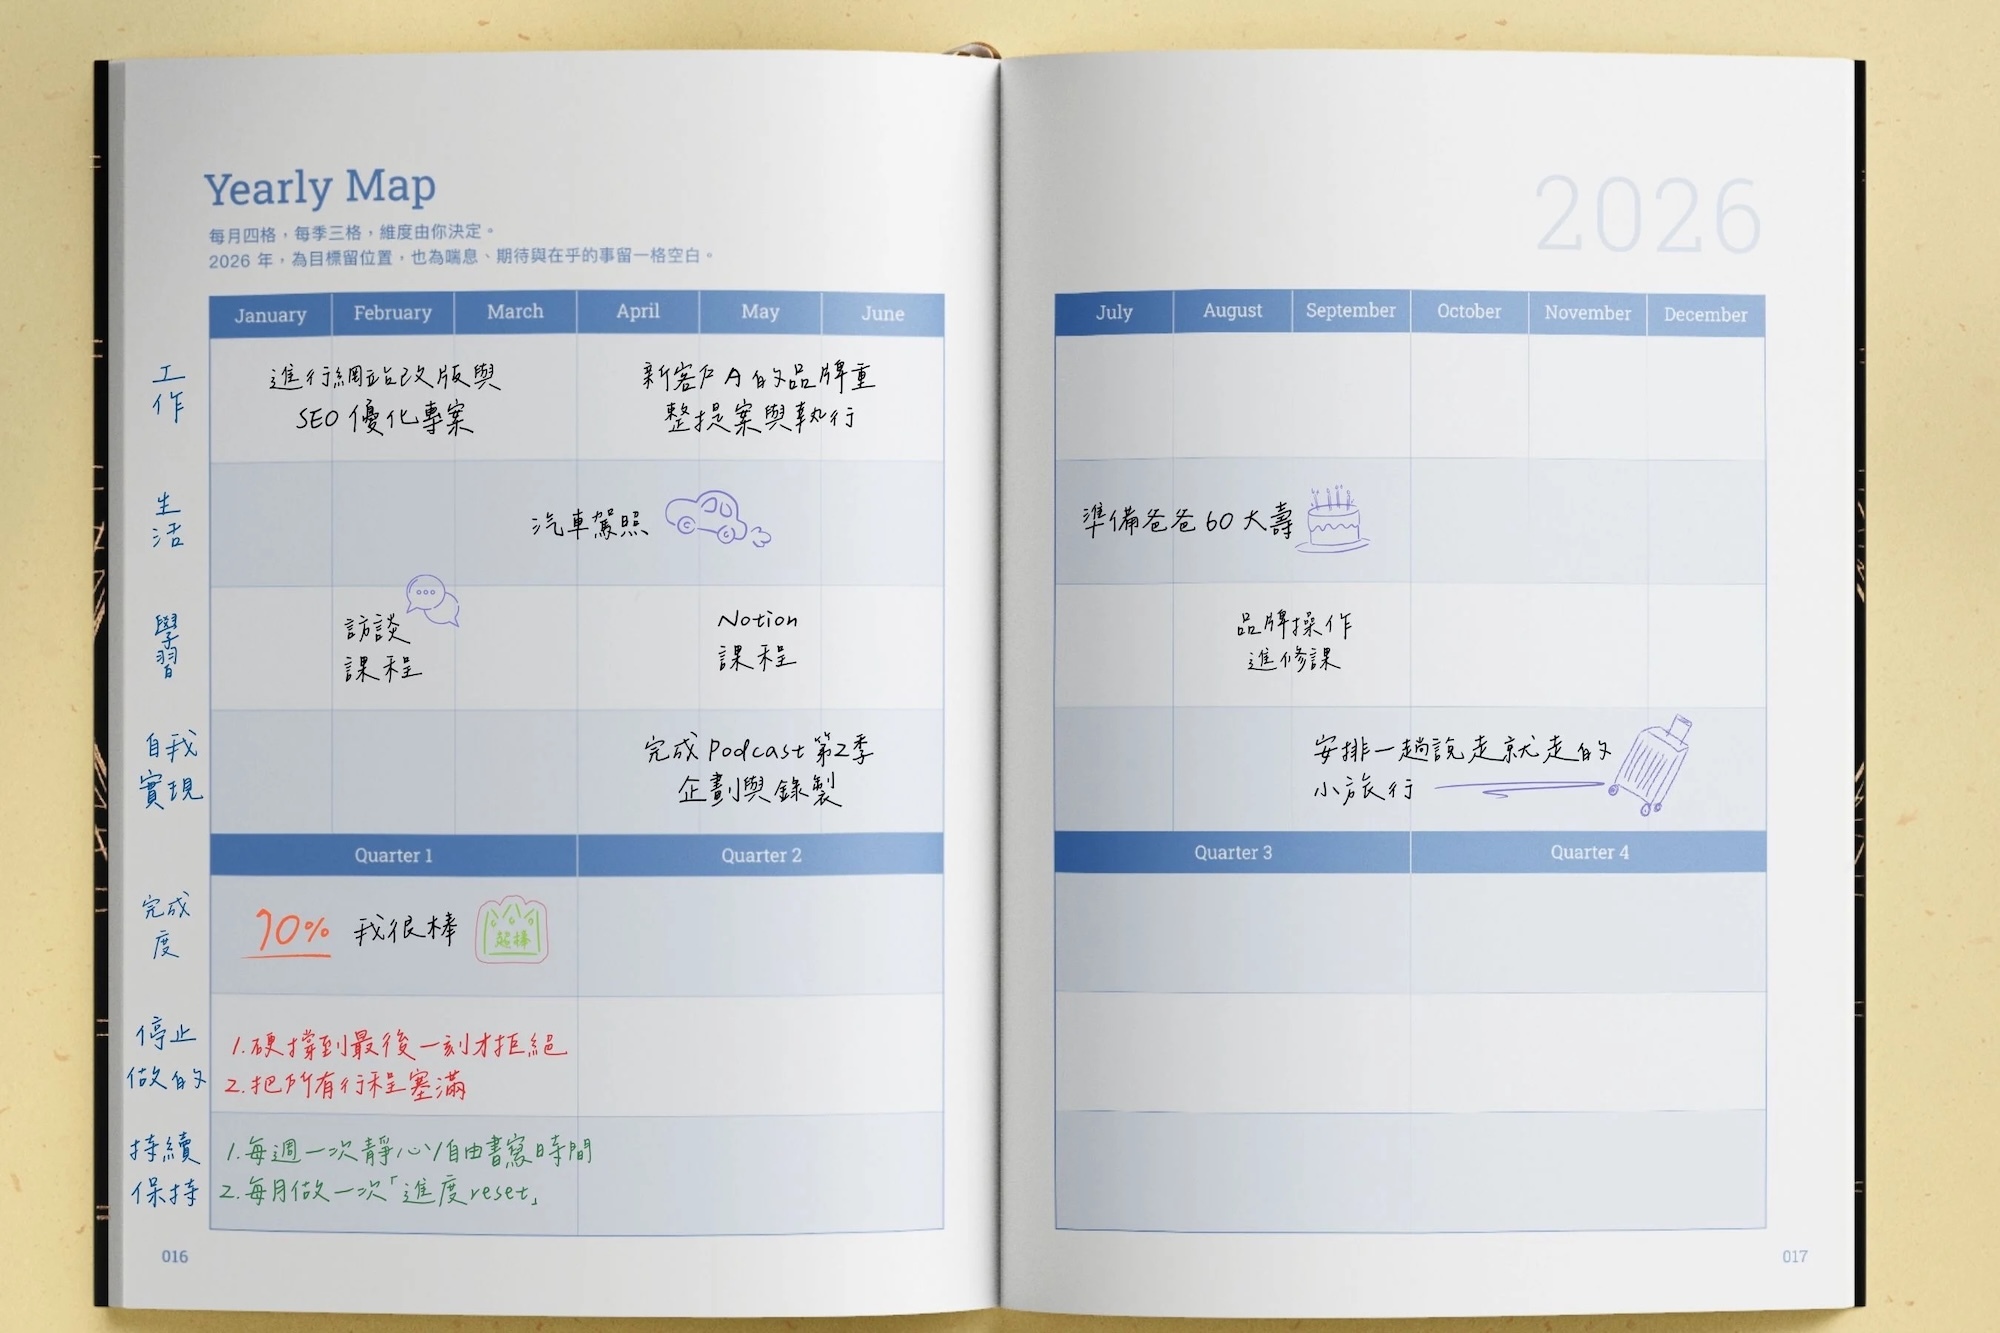 Yearly Map
每月四格，每季三格，維度由你決定。
2026 年，為目標留位置，也為喘息、期待與在乎的事留一格空白。
2026
January February March April May June
July August September October November December
工
作
進行網站改版與
SEO 優化專案
新客戶A的品牌重
整提案與執行
生
活
汽車駕照
準備爸爸60大壽
學
習
訪談
課程
Notion
課程
品牌操作
進修課
自我
實現
完成Podcast第2季
企劃與錄製
安排一趟說走就走的
小旅行
Quarter 1 Quarter 2
Quarter 3 Quarter 4
完成
度
70% 我很棒
超棒
停止
做的
1.硬撐到最後一刻才拒絕
2.把所有行程塞滿
持續
保持
1.每週一次靜心/自由書寫時間
2.每月做一次「進度reset」
016
017